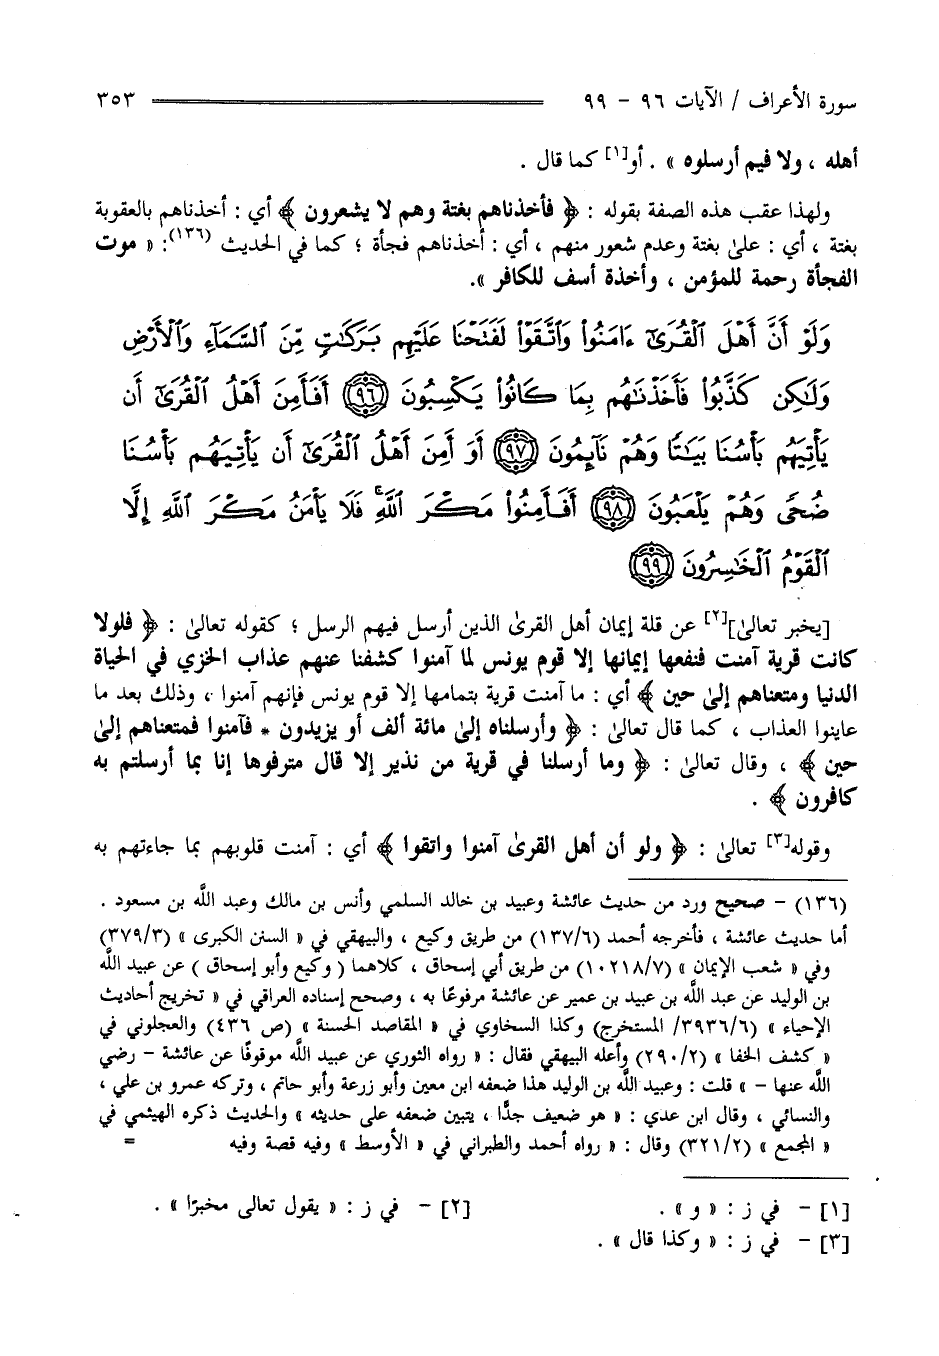 سورة الأعراف / الآيات ٩٦ - ٩٩ ٣٥٣
أهله ، ولا فيم أرسلوه » . أو[١] كما قال .
ولهذا عقب هذه الصفة بقوله : ﴿ فأخذناهم بغتة وهم لا يشعرون ﴾ أي : أخذناهم بالعقوبة
بغتة ، أي : على بغتة وعدم شعور منهم ، أي : أخذناهم فجأة ؛ كما في الحديث (١٣٦): « موت
الفجأة رحمة للمؤمن ، وأخذة أسف للكافر ».
وَلَوْ أَنَّ أَهْلَ ٱلْقُرَىٰٓ ءَامَنُوا۟ وَٱتَّقَوْا۟ لَفَتَحْنَا عَلَيْهِم بَرَكَٰتٍ مِّنَ ٱلسَّمَآءِ وَٱلْأَرْضِ
وَلَٰكِن كَذَّبُوا۟ فَأَخَذْنَٰهُم بِمَا كَانُوا۟ يَكْسِبُونَ ﴿٩٦﴾ أَفَأَمِنَ أَهْلُ ٱلْقُرَىٰٓ أَن
يَأْتِيَهُم بَأْسُنَا بَيَٰتًا وَهُمْ نَآئِمُونَ ﴿٩٧﴾ أَوَ أَمِنَ أَهْلُ ٱلْقُرَىٰٓ أَن يَأْتِيَهُم بَأْسُنَا
ضُحًى وَهُمْ يَلْعَبُونَ ﴿٩٨﴾ أَفَأَمِنُوا۟ مَكْرَ ٱللَّهِ ۚ فَلَا يَأْمَنُ مَكْرَ ٱللَّهِ إِلَّا
ٱلْقَوْمُ ٱلْخَٰسِرُونَ ﴿٩٩﴾
[يخبر تعالىٰ][٢] عن قلة إيمان أهل القرىٰ الذين أرسل فيهم الرسل ؛ كقوله تعالىٰ : ﴿ فلولا
كانت قرية آمنت فنفعها إيمانها إلا قوم يونس لما آمنوا كشفنا عنهم عذاب الخزي في الحياة
الدنيا ومتعناهم إلىٰ حين ﴾ أي : ما آمنت قرية بتمامها إلا قوم يونس فإنهم آمنوا ، وذلك بعد ما
عاينوا العذاب ، كما قال تعالىٰ : ﴿ وأرسلناه إلىٰ مائة ألف أو يزيدون * فآمنوا فمتعناهم إلىٰ
حين ﴾ ، وقال تعالىٰ : ﴿ وما أرسلنا في قرية من نذير إلا قال مترفوها إنا بما أرسلتم به
كافرون ﴾ .
وقوله[٣] تعالىٰ : ﴿ ولو أن أهل القرىٰ آمنوا واتقوا ﴾ أي : آمنت قلوبهم بما جاءتهم به
(١٣٦) - صحيح ورد من حديث عائشة وعبيد بن خالد السلمي وأنس بن مالك وعبد الله بن مسعود .
أما حديث عائشة ، فأخرجه أحمد (١٣٧/٦) من طريق وكيع ، والبيهقي في « السنن الكبرى » (٣٧٩/٣)
وفي « شعب الإيمان » (١٠٢١٨/٧) من طريق أبي إسحاق ، كلاهما ( وكيع وأبو إسحاق ) عن عبيد الله
بن الوليد عن عبد الله بن عبيد بن عمير عن عائشة مرفوعًا به ، وصحح إسناده العراقي في « تخريج أحاديث
الإحياء » (٣٩٣٦/٦/ المستخرج) وكذا السخاوي في « المقاصد الحسنة » (ص ٤٣٦) والعجلوني في
« كشف الخفا » (٢٩٠/٢) وأعله البيهقي فقال : « رواه الثوري عن عبيد الله موقوفًا عن عائشة - رضي
الله عنها - » قلت : وعبيد الله بن الوليد هذا ضعفه ابن معين وأبو زرعة وأبو حاتم ، وتركه عمرو بن علي ،
والنسائي ، وقال ابن عدي : « هو ضعيف جدًّا ، يتبين ضعفه على حديثه » والحديث ذكره الهيثمي في
« المجمع » (٣٢١/٢) وقال : « رواه أحمد والطبراني في « الأوسط » وفيه قصة وفيه =
[١] - في ز : « و» . [٢] - في ز : « يقول تعالى مخبرًا » .
[٣] - في ز : « وكذا قال » .